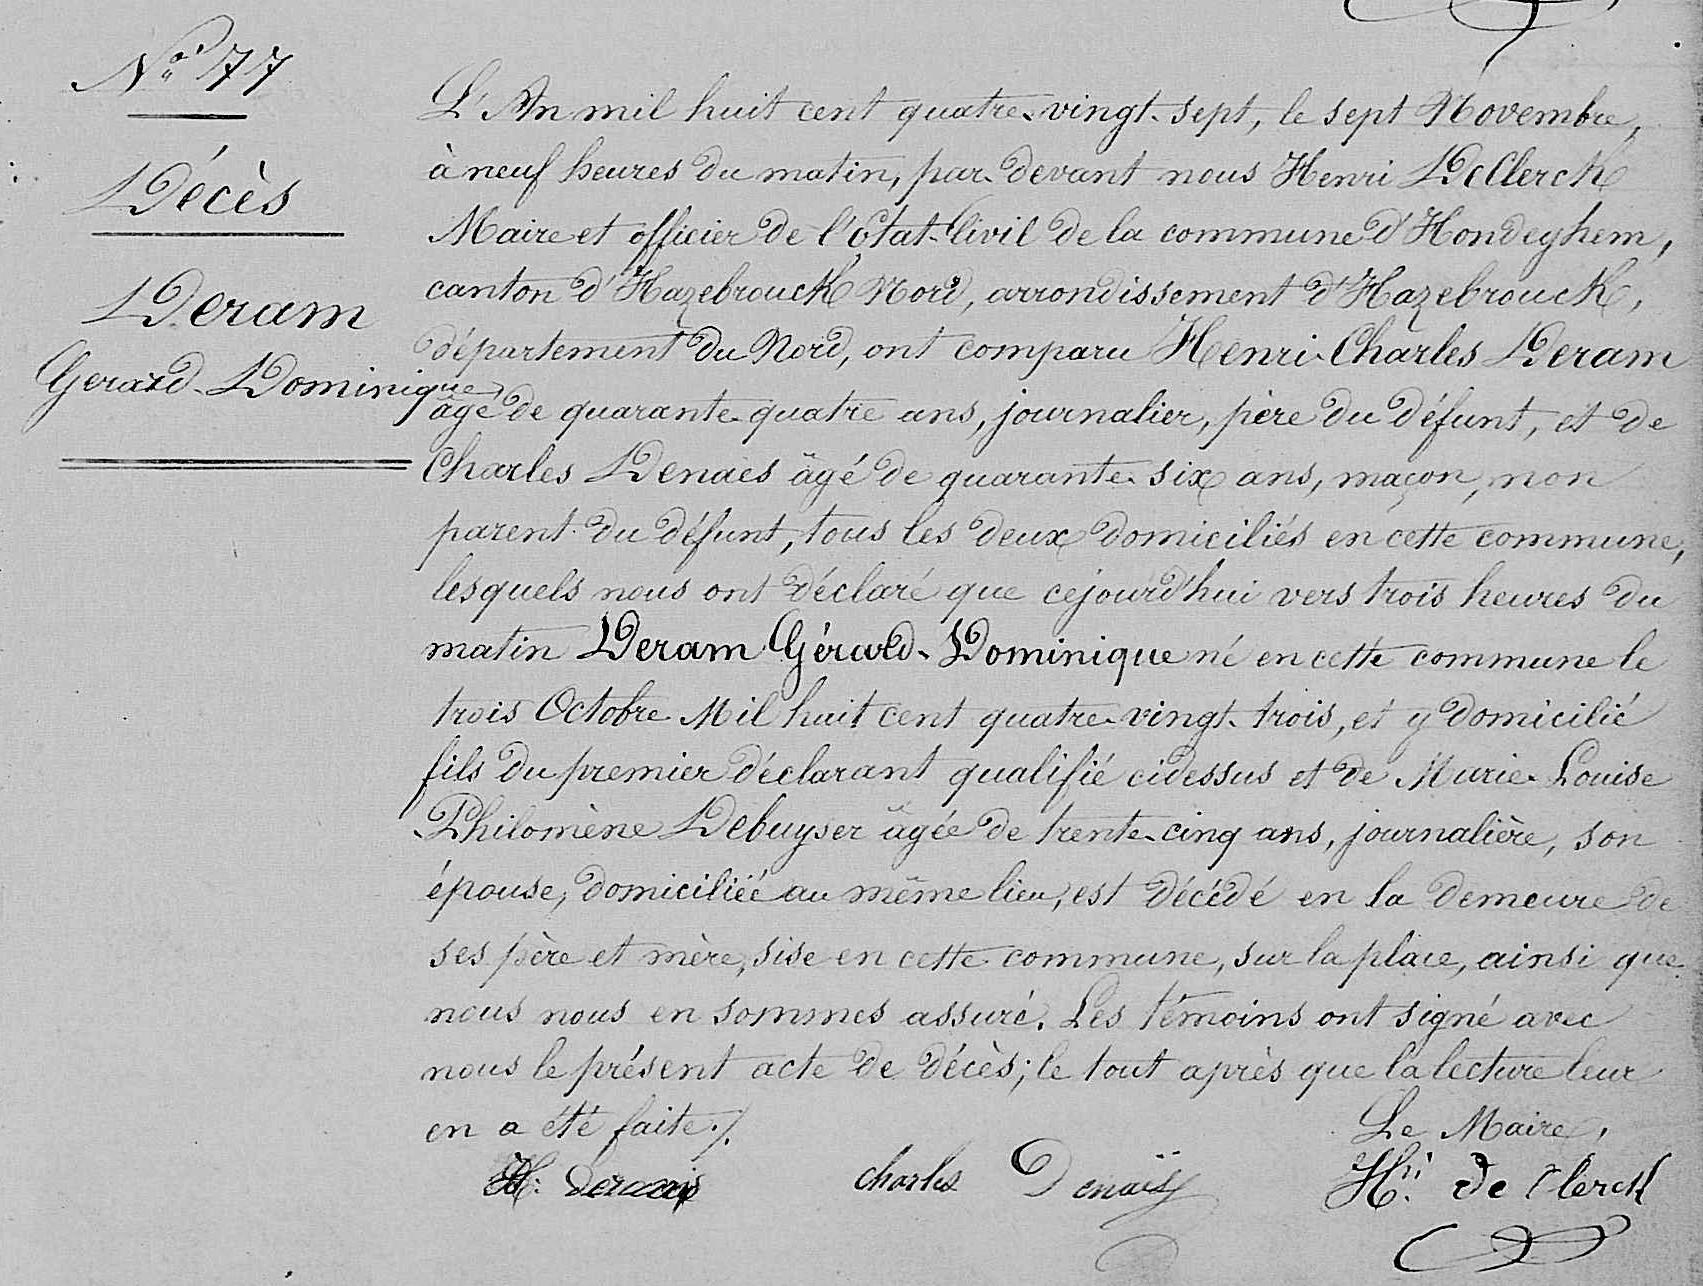 N° 77
Décès
Deram
Gerard-Dominique
L'An mil huit cent quatre-vingt-sept, le sept Novembre,
à neuf heures du matin, par-devant nous Henri DeClerck
Maire et officier de l'Etat-Civil de la commune d'Hondeghem,
canton d'Hazebrouck Nord, arrondissement d'Hazebrouck,
département du Nord, ont comparu Henri-Charles Deram
âgé de quarante-quatre ans, journalier, père du défunt, et de
Charles Denaes âgé de quarante-six ans, maçon, non
parent du défunt, tous les deux domiciliés en cette commune,
lesquels nous ont déclaré que cejourd'hui vers trois heures du
matin Deram Gérard-Dominique né en cette commune le
trois Octobre Mil huit cent quatre-vingt-trois, et y domicilié
fils du premier déclarant qualifié cidessus et de Marie-Louise
Philomène Debuyser âgée de trente-cinq ans, journalière, son
épouse, domiciliée au même lieu, est décédé en la demeure de
ses père et mère, sise en cette commune, sur la place, ainsi que
nous nous en sommes assuré. Les témoins ont signé avec
nous le présent acte de décès; le tout après que la lecture leur
en a été faite./.
Le Maire,
H. charles Denaïs Hri de Clerck